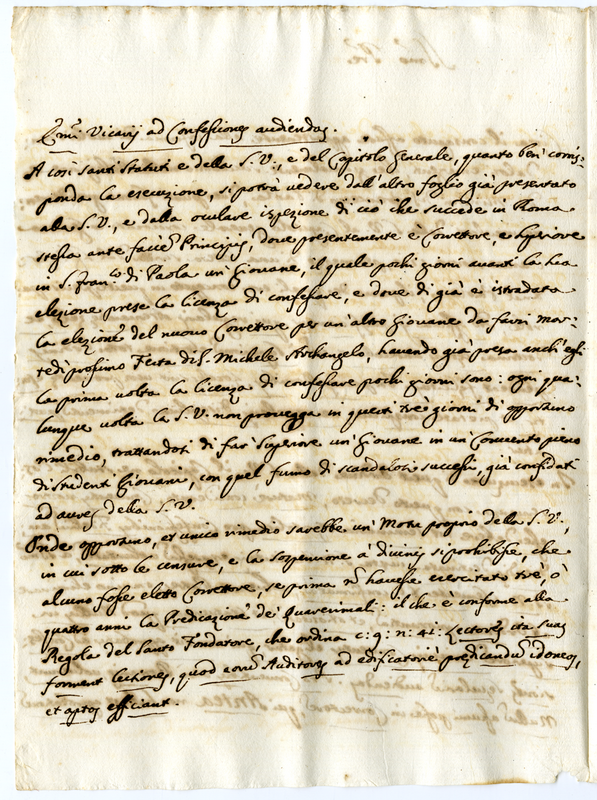 Emi Vicarij ad Confessiones audiendas.
A così santi Statuti e della S. V., e del Capitolo Generale, quanto ben corris-
ponda la esecuzione, si potrà vedere dall'altro foglio già presentato
alla S. V., e dalla oculare ispezione di ciò che succede in Roma
stessa ante faciē Principis, dove presentemente è Correttore, e Superiore
in S. Franco. di Paola un Giovane, il quale pochi giorni avanti la sua
elezione prese la licenza di confessare, e dove di già è istradata
la elezione del nuovo Correttore per un'altro Giovane da farsi Mar-
tedì prossimo Festa di S. Michele Archangelo, havendo già presa anch'egli
la prima volta la licenza di confessare pochi giorni sono: ogni qua-
lunque volta la S. V. non provegga in questi trè giorni di opportuno
rimedio, trattandosi di far Superiore un Giovane in un Convento pieno
di studenti Giovani, con quel fumo di scandalosi successi, già confidati
ad aures della S. V.
Onde opportuno, et unico rimedio sarebbe un Motu proprio della S. V.,
in cui sotto le censure, e la sospensione à divinis si proibisse, che
alcuno fosse eletto Correttore, se prima nō havesse esercitato trè, ò
quattro anni la Predicazione de' Quaresimali: il che è conforme alla
Regola del Santo Fondatore, che ordina c: 9: n: 41: Lectores ita suas
forment lectiones, quod eorū Auditores ad edificatoriè prædicandū idoneos,
et aptos efficiant.